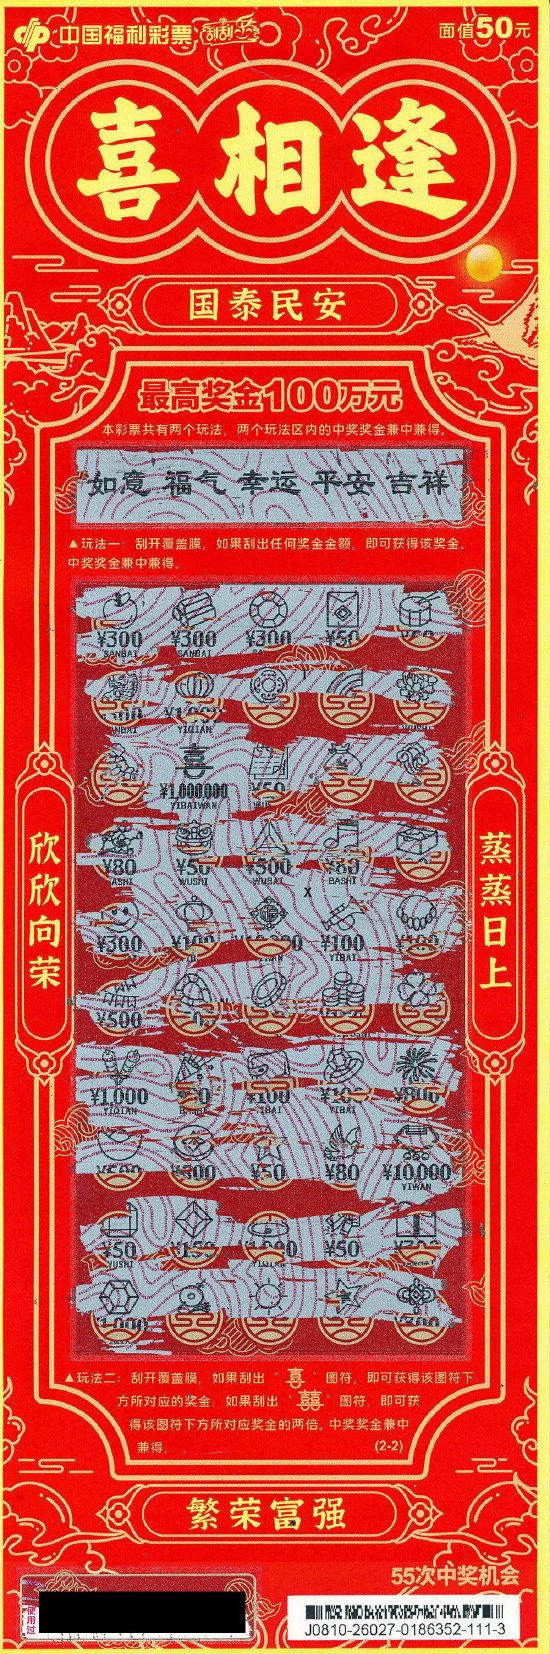 中国福利彩票 刮刮乐
面值50元
喜相逢
国泰民安
最高奖金100万元
本彩票共有两个玩法，两个玩法区内的中奖奖金兼中兼得。
如意 福气 幸运 平安 吉祥
▲玩法一：刮开覆盖膜，如果刮出任何奖金金额，即可获得该奖金。
中奖奖金兼中兼得。
¥300 ¥300 ¥300 ¥50
SANBAI SANBAI
YIQIAN
喜
¥1,000,000 ¥50
YIBAIWAN
欣欣向荣
蒸蒸日上
¥80 ¥50 ¥500 ¥80
BASHI WUSHI WUBAI BASHI
¥300 ¥100 ¥100
YIBAI
¥500
¥1,000 ¥100 ¥800
YIQIAN YIBAI YIBAI
¥500 ¥300 ¥50 ¥80 ¥10,000
YIWAN
¥50 ¥50
WUSHI
▲玩法二：刮开覆盖膜，如果刮出“喜”图符，即可获得该图符下
方所对应的奖金；如果刮出“囍”图符，即可获
得该图符下方所对应奖金的两倍。中奖奖金兼中
兼得。 (2-2)
繁荣富强
55次中奖机会
使用过
J0810-26027-0186352-111-3